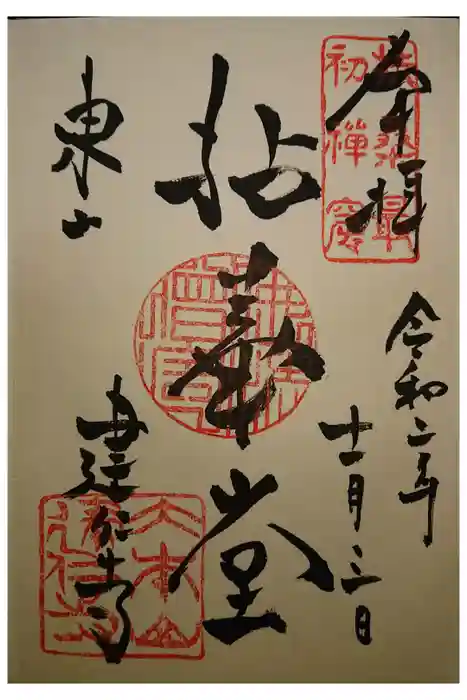 奉拝
扶桑最
初禅窟
令和二年
十一月三日
拈華堂
東山
建仁寺
大本山
建仁寺